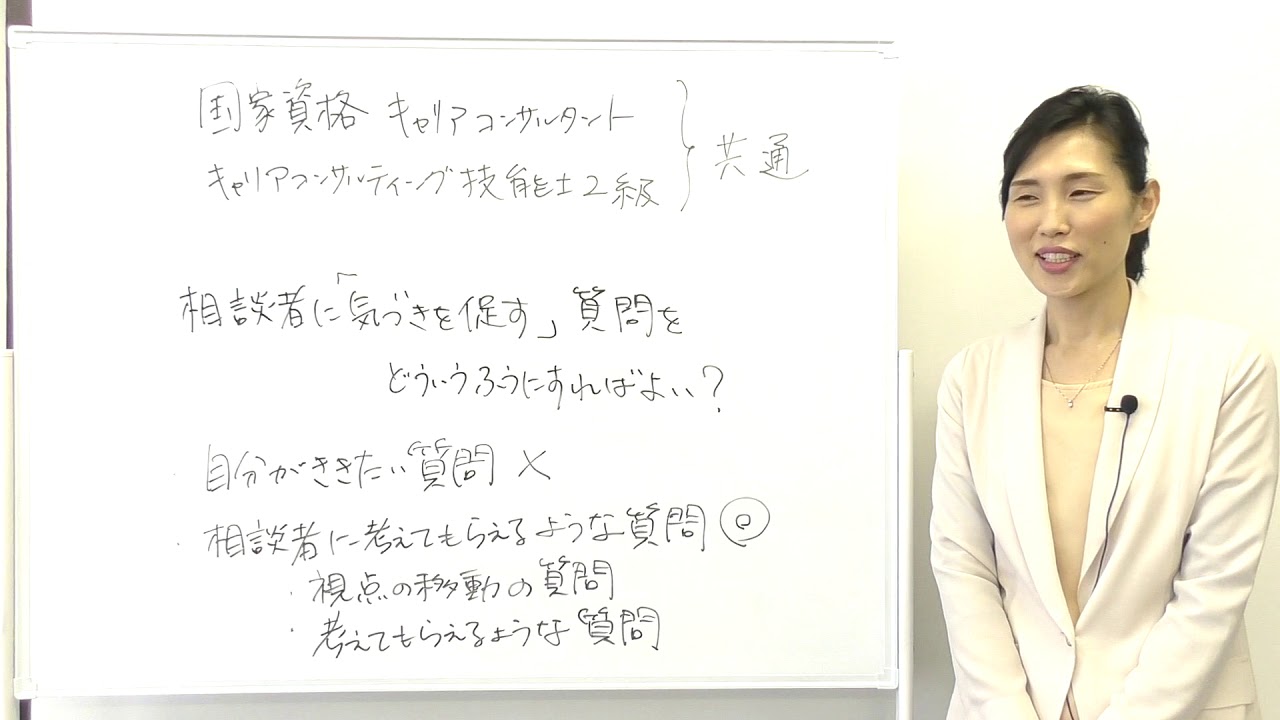 国家資格 キャリアコンサルタント
キャリアコンサルティング技能士2級
共通
相談者に「気づきを促す」質問を
どういうふうにすればよい?
・自分がききたい質問 ×
・相談者に考えてもらえるような質問 ◎
・視点の移動の質問
・考えてもらえるような質問